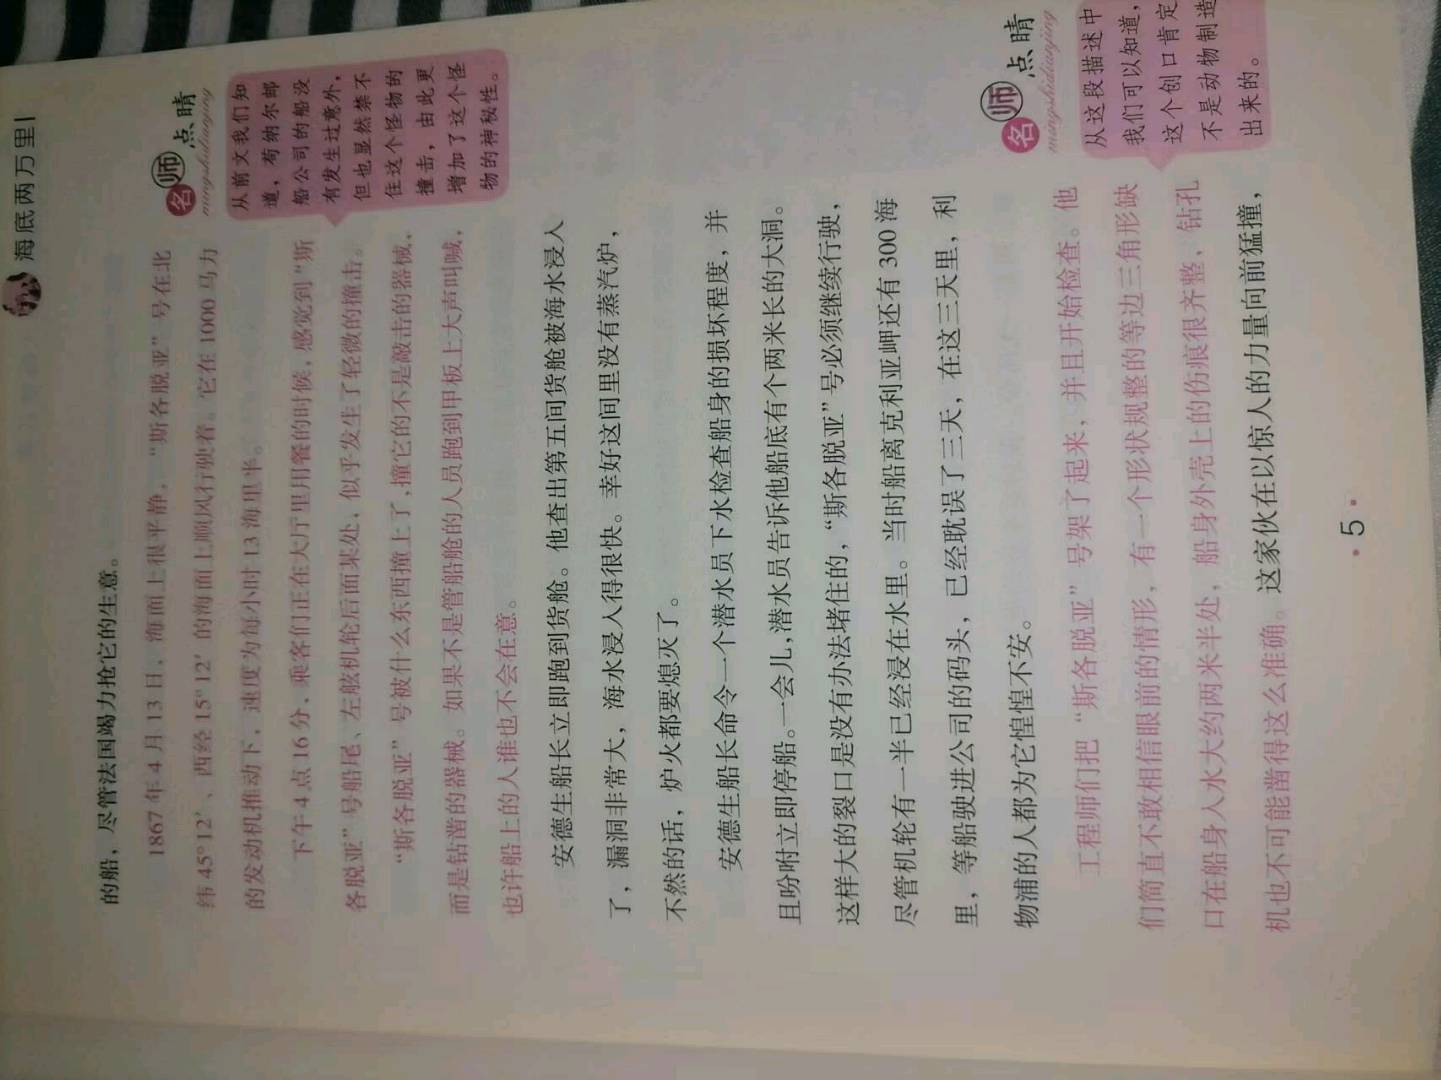 海底两万里
的船，尽管法国竭力抢它的生意。
1867 年 4 月 13 日，海面上很平静，“斯各脱亚”号在北
纬 45° 12′、西经 15° 12′ 的海面上顺风行驶着。它在 1000 马力
的发动机推动下，速度为每小时 13 海里半。
下午 4 点 16 分，乘客们正在大厅里用餐的时候，感觉到“斯
各脱亚”号船尾、左舷机轮后面某处，似乎发生了轻微的撞击。
“斯各脱亚”号被什么东西撞上了，撞它的不是敲击的器械，
而是钻凿的器械。如果不是管船舱的人员跑到甲板上大声叫喊，
也许船上的人谁也不会在意。
名师点睛
mingshidianjing
从前文我们知
道，苟纳尔邮
船公司的船没
有发生过意外，
但也显然禁不
住这个怪物的
撞击，由此更
增加了这个怪
物的神秘性。
安德生船长立即跑到货舱。他查出第五间货舱被海水浸入
了，漏洞非常大，海水浸入得很快。幸好这间里没有蒸汽炉，
不然的话，炉火都要熄灭了。
安德生船长命令一个潜水员下水检查船身的损坏程度，并
且吩咐立即停船。一会儿，潜水员告诉他船底有个两米长的大洞。
这样大的裂口是没有办法堵住的，“斯各脱亚”号必须继续行驶，
尽管机轮有一半已经浸在水里。当时船离克利亚岬还有 300 海
里，等船驶进公司的码头，已经耽误了三天，在这三天里，利
物浦的人都为它惶惶不安。
工程师们把“斯各脱亚”号架了起来，并且开始检查。他
们简直不敢相信眼前的情形，有一个形状规整的等边三角形缺
口在船身入水大约两米半处，船身外壳上的伤痕很齐整，钻孔
机也不可能凿得这么准确。这家伙在以惊人的力量向前猛撞，
名师点睛
mingshidianjing
从这段描述中
我们可以知道，
这个创口肯定
不是动物制造
出来的。
·5·